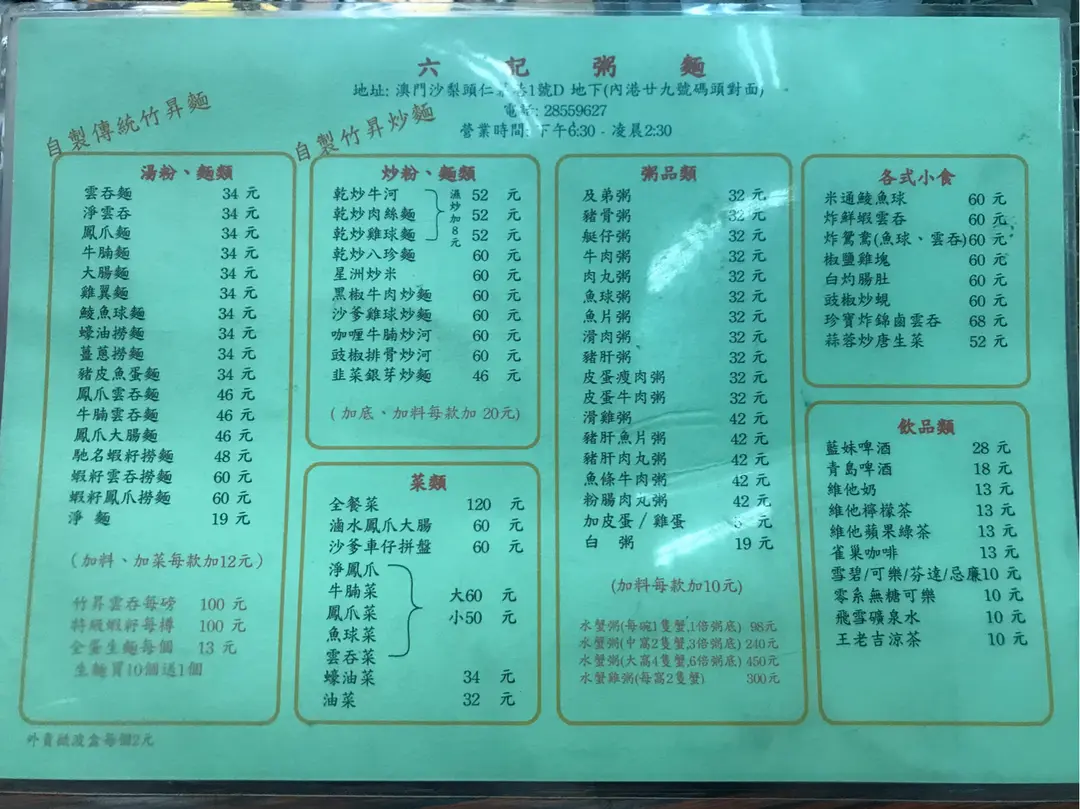 六記粥麵
地址: 澳門沙梨頭仁慕巷1號D 地下(內港廿九號碼頭對面)
電話: 28559627
營業時間: 下午6:30 - 凌晨2:30
自製傳統竹昇麵
自製竹昇炒麵
湯粉、麵類
雲吞麵 34 元
淨雲吞 34 元
鳳爪麵 34 元
牛腩麵 34 元
大腸麵 34 元
雞翼麵 34 元
鯪魚球麵 34 元
蠔油撈麵 34 元
薑蔥撈麵 34 元
豬皮魚蛋麵 34 元
鳳爪雲吞麵 46 元
牛腩雲吞麵 46 元
鳳爪大腸麵 46 元
馳名蝦籽撈麵 48 元
蝦籽雲吞撈麵 60 元
蝦籽鳳爪撈麵 60 元
淨 麵 19 元
(加料、加菜每款加12元)
竹昇雲吞每磅 100 元
特級蝦籽每樽 100 元
全蛋生麵每個 13 元
生麵買10個送1個
炒粉、麵類
乾炒牛河 52 元
乾炒肉絲麵 52 元
乾炒雞球麵 52 元
濕炒加8元
乾炒八珍麵 60 元
星洲炒米 60 元
黑椒牛肉炒麵 60 元
沙爹雞球炒麵 60 元
咖喱牛腩炒河 60 元
豉椒排骨炒河 60 元
韭菜銀芽炒麵 46 元
(加底、加料每款加 20元)
菜類
全餐菜 120 元
滷水鳳爪大腸 60 元
沙爹車仔拼盤 60 元
淨鳳爪
牛腩菜 大60 元
鳳爪菜 小50 元
魚球菜
雲吞菜
蠔油菜 34 元
油菜 32 元
粥品類
及弟粥 32 元
豬骨粥 32 元
艇仔粥 32 元
牛肉粥 32 元
肉丸粥 32 元
魚球粥 32 元
魚片粥 32 元
滑肉粥 32 元
豬肝粥 32 元
皮蛋瘦肉粥 32 元
皮蛋牛肉粥 32 元
滑雞粥 42 元
豬肝魚片粥 42 元
豬肝肉丸粥 42 元
魚條牛肉粥 42 元
粉腸肉丸粥 42 元
加皮蛋 / 雞蛋 元
白 粥 19 元
(加料每款加10元)
水蟹粥(每碗1隻蟹,1倍粥底) 98元
水蟹粥(中窩2隻蟹,3倍粥底) 240元
水蟹粥(大窩4隻蟹,6倍粥底) 450元
水蟹雞粥(每窩2隻蟹) 300元
各式小食
米通鯪魚球 60 元
炸鮮蝦雲吞 60 元
炸鴛鴦(魚球、雲吞) 60 元
椒鹽雞塊 60 元
白灼腸肚 60 元
豉椒炒蜆 60 元
珍寶炸錦鹵雲吞 68 元
蒜蓉炒唐生菜 52 元
飲品類
藍妹啤酒 28 元
青島啤酒 18 元
維他奶 13 元
維他檸檬茶 13 元
維他蘋果綠茶 13 元
雀巢咖啡 13 元
雪碧/可樂/芬達/忌廉10 元
零系無糖可樂 10 元
飛雪礦泉水 10 元
王老吉涼茶 10 元
外賣微波盒每個2元